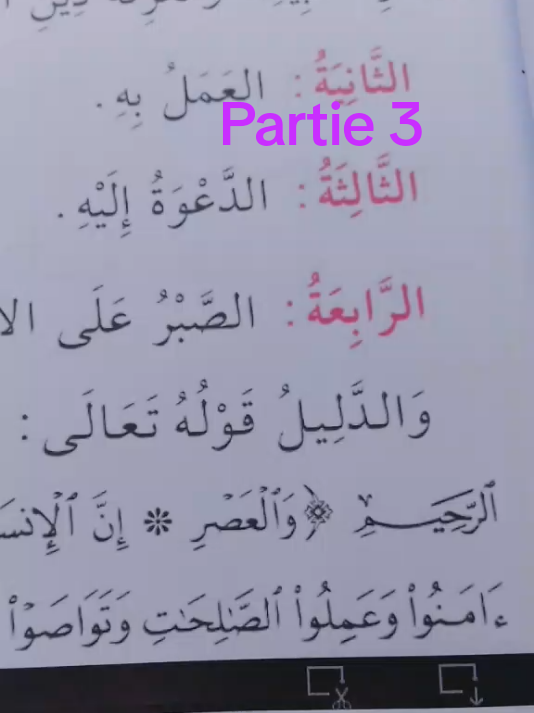 الثَّانِيَةُ : العَمَلُ بِهِ .
Partie 3
الثَّالِثَةُ : الدَّعْوَةُ إِلَيْهِ .
الرَّابِعَةُ : الصَّبْرُ عَلَى
وَالدَّلِيلُ قَوْلُهُ تَعَالَى :
ٱلرَّحِيمِ ﴿وَٱلْعَصْرِ * إِنَّ
ءَامَنُوا۟ وَعَمِلُوا۟ ٱلصَّٰلِحَٰتِ وَتَوَاصَوْا۟